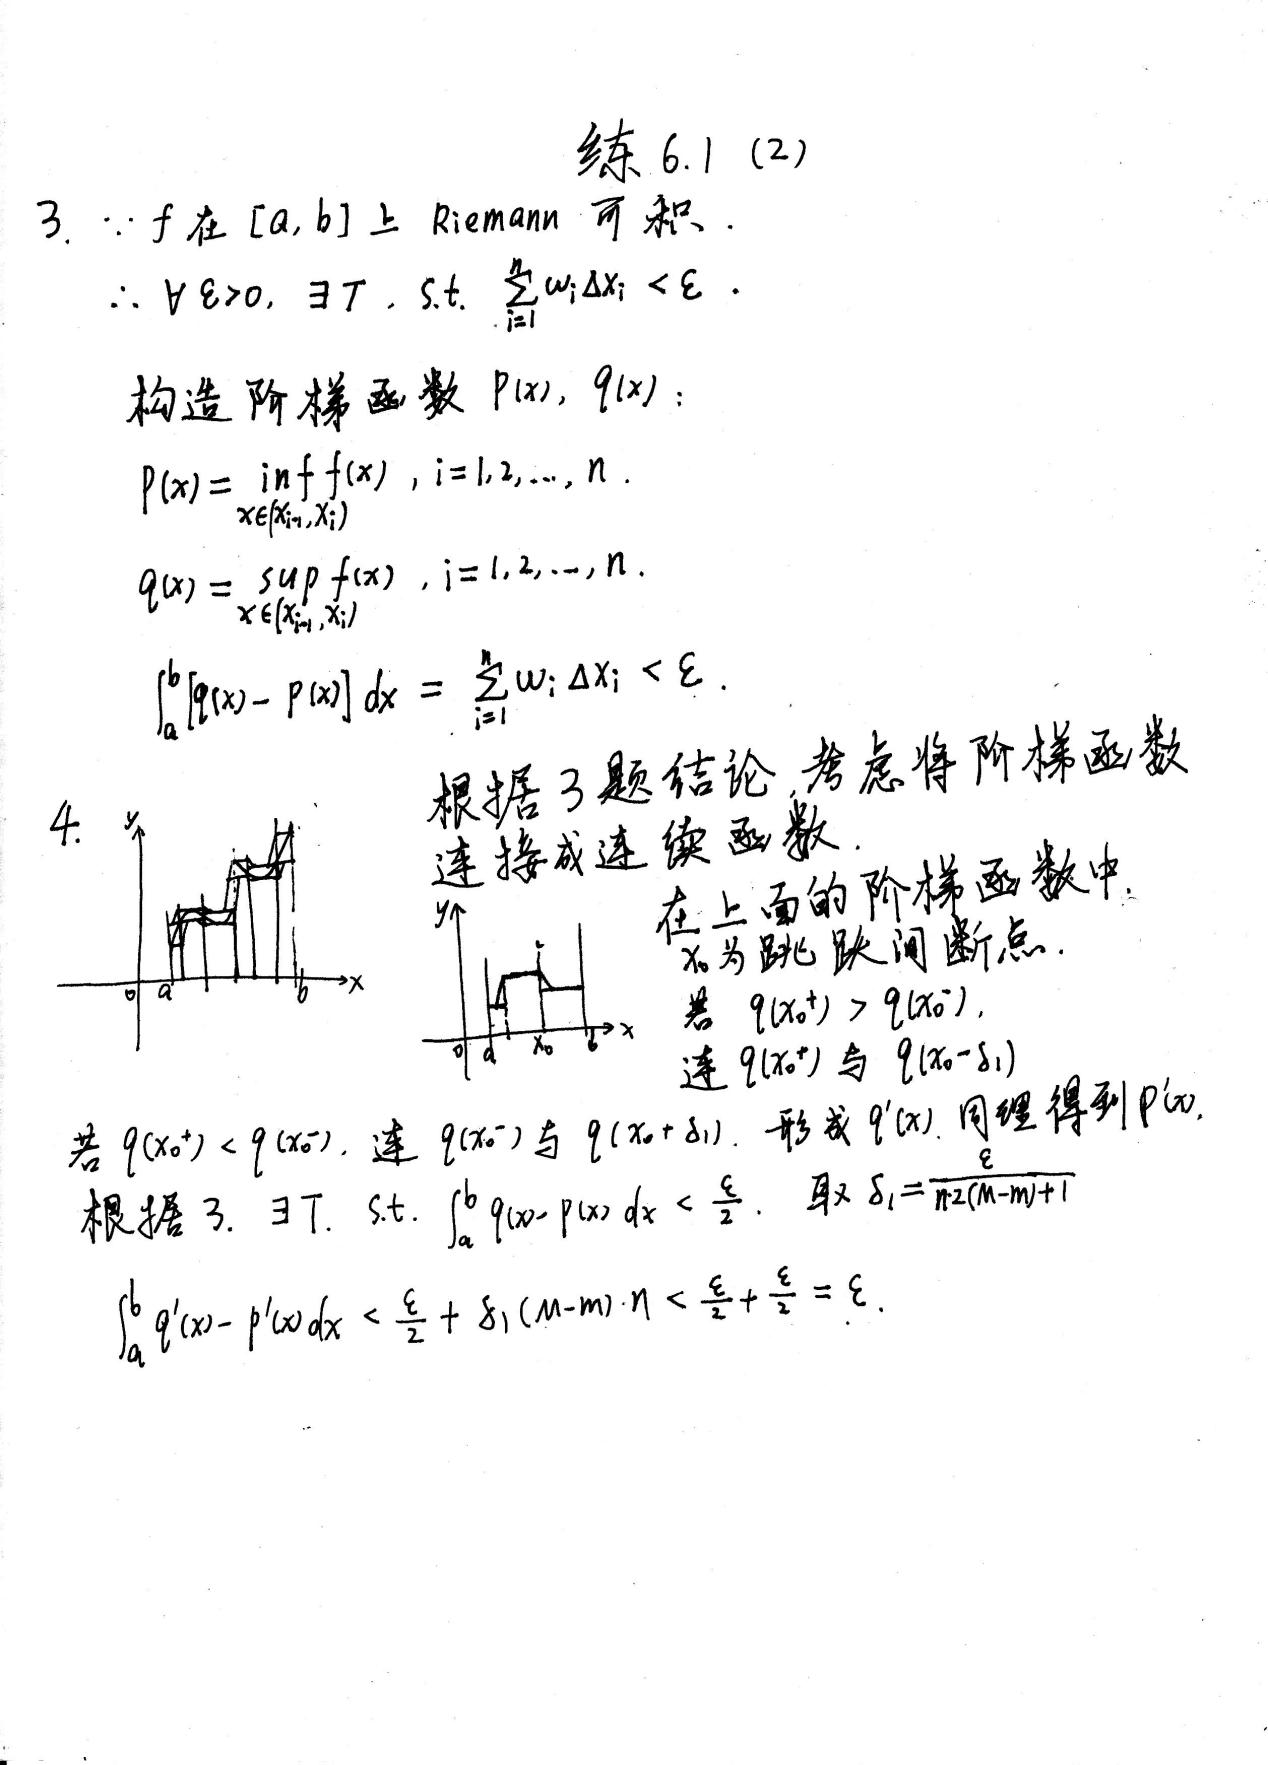 练 6.1 (2)
3. ∵ f 在 [a, b] 上 Riemann 可积.
∴ ∀ ε>0, ∃ T, s.t. ∑_{i=1}^{n} ω_i Δx_i < ε.
构造阶梯函数 P(x), q(x):
P(x) = inf_{x∈(x_{i-1}, x_i)} f(x), i=1,2,…, n.
q(x) = sup_{x∈(x_{i-1}, x_i)} f(x), i=1,2,…, n.
∫_a^b [q(x) - P(x)] dx = ∑_{i=1}^{n} ω_i Δx_i < ε.
4.
y
0 a b x
根据3题结论, 考虑将阶梯函数
连接成连续函数.
y
0 a x₀ b x
在上面的阶梯函数中.
x₀为跳跃间断点.
若 q(x₀⁺) > q(x₀⁻),
连 q(x₀⁺) 与 q(x₀-δ₁)
若 q(x₀⁺) < q(x₀⁻), 连 q(x₀⁻) 与 q(x₀+δ₁). 形成 q'(x). 同理得到 p'(x).
根据 3. ∃ T. s.t. ∫_a^b q(x) - p(x) dx < ε/2. 取 δ₁ = ε/(n·2(M-m)+1)
∫_a^b q'(x) - p'(x) dx < ε/2 + δ₁(M-m)·n < ε/2 + ε/2 = ε.